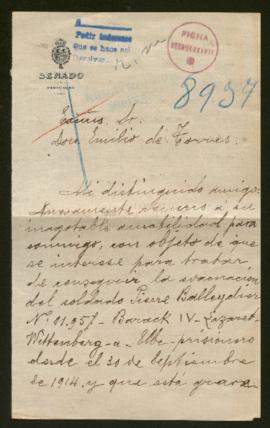 A
Pedir informes
Que se hace así
FICHA
SENADO
PARTICULAR
8937
Excmo. Sr.
Don Emilio de Torres.
Mi distinguido amigo:
Nuevamente recurro a su
inagotable amabilidad para
conmigo, con objeto de que
se interese para tratar
de conseguir la evacuacion
del soldado Pierre Balleydier
Nº 01.957 - Barack IV - Lazaret
Wittemberg - a - Elbe - prisionero
desde el 30 de Septiembre
de 1914 y que está grave